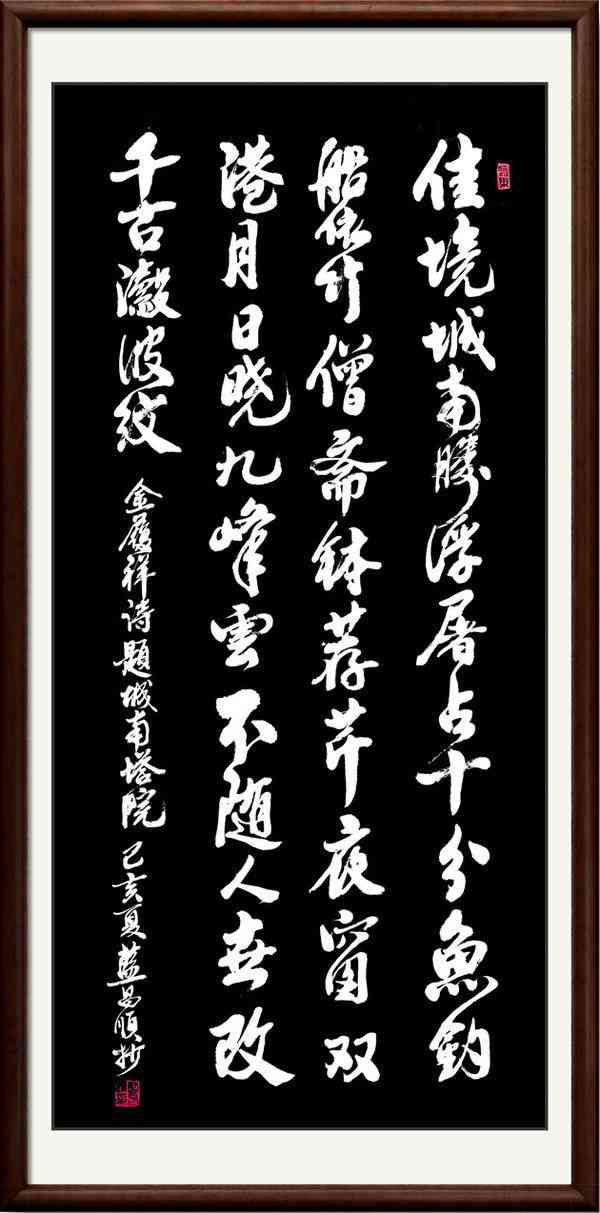 佳境城南勝浮屠占十分魚釣
船依竹僧斋鉢荐芹夜窗双
港月日晓九峰雲不随人世改
千古瀫波纹 金履祥诗题城南塔院 己亥夏蓝昌顺抄